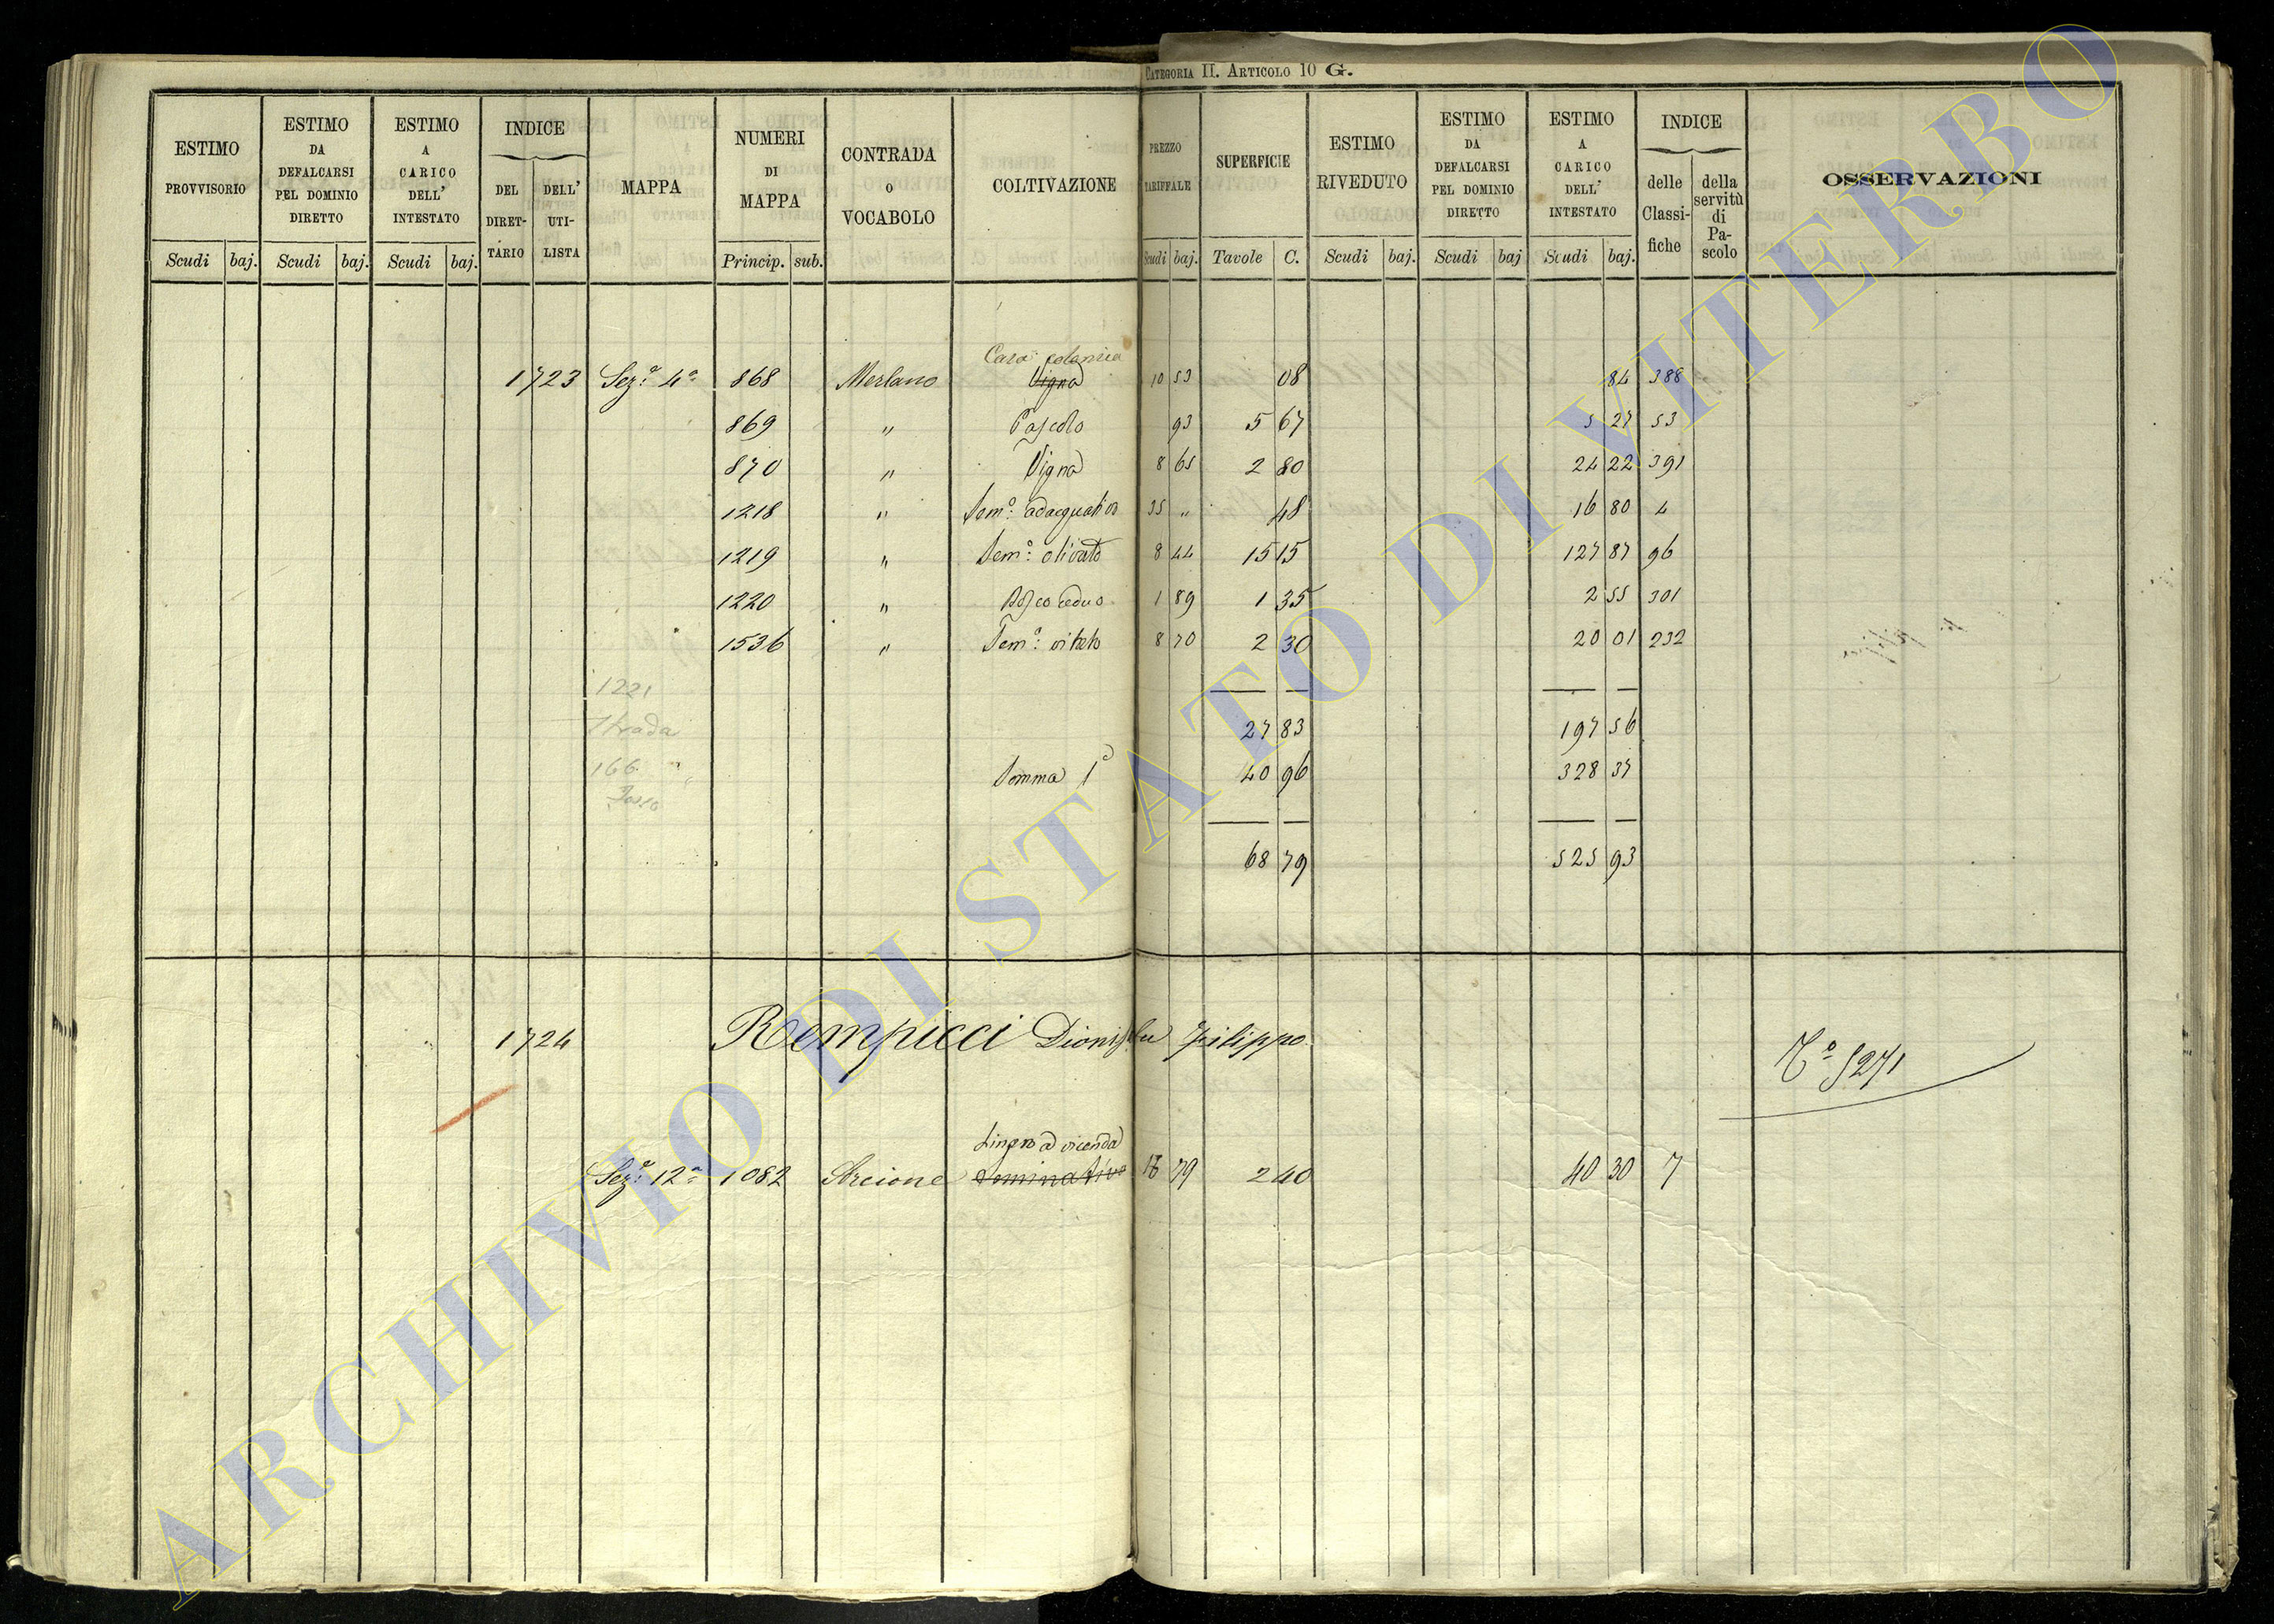 CATEGORIA II. ARTICOLO 10 G.
ESTIMO PROVVISORIO Scudi baj.
ESTIMO DA DEFALCARSI PEL DOMINIO DIRETTO Scudi baj.
ESTIMO A CARICO DELL' INTESTATO Scudi baj.
INDICE DEL DIRET-TARIO DELL' UTI-LISTA
MAPPA
NUMERI DI MAPPA Princip. sub.
CONTRADA O VOCABOLO
COLTIVAZIONE
PREZZO TARIFFALE Scudi baj.
SUPERFICIE Tavole C.
ESTIMO RIVEDUTO Scudi baj.
ESTIMO DA DEFALCARSI PEL DOMINIO DIRETTO Scudi baj
ESTIMO A CARICO DELL' INTESTATO Scudi baj.
INDICE delle Classi-fiche della servitù di Pa-scolo
OSSERVAZIONI
Casa colonica
1723 Sez.e 4a 868 Merlano Vigna 10 53 08 84 388
869 " Pascolo 93 5 67 5 27 53
870 " Vigna 8 65 2 80 24 22 391
1218 " Sem.o adacquativo 35 " 48 16 80 4
1219 " Sem.o olivato 8 44 15 15 127 87 96
1220 " Bosco ceduo 1 89 1 35 2 55 301
1536 " Sem.o vitato 8 70 2 30 20 01 232
1221
Strada
27 83 197 56
166
Fosso
Somma 1a 40 96 328 37
68 79 525 93
1724 Rempicci Dionisio fu Filippo
To 5271
Sez.e 12a 1082 Arcione seminativo 16 79 2 40 40 30 7
ARCHIVIO DI STATO DI VITERBO